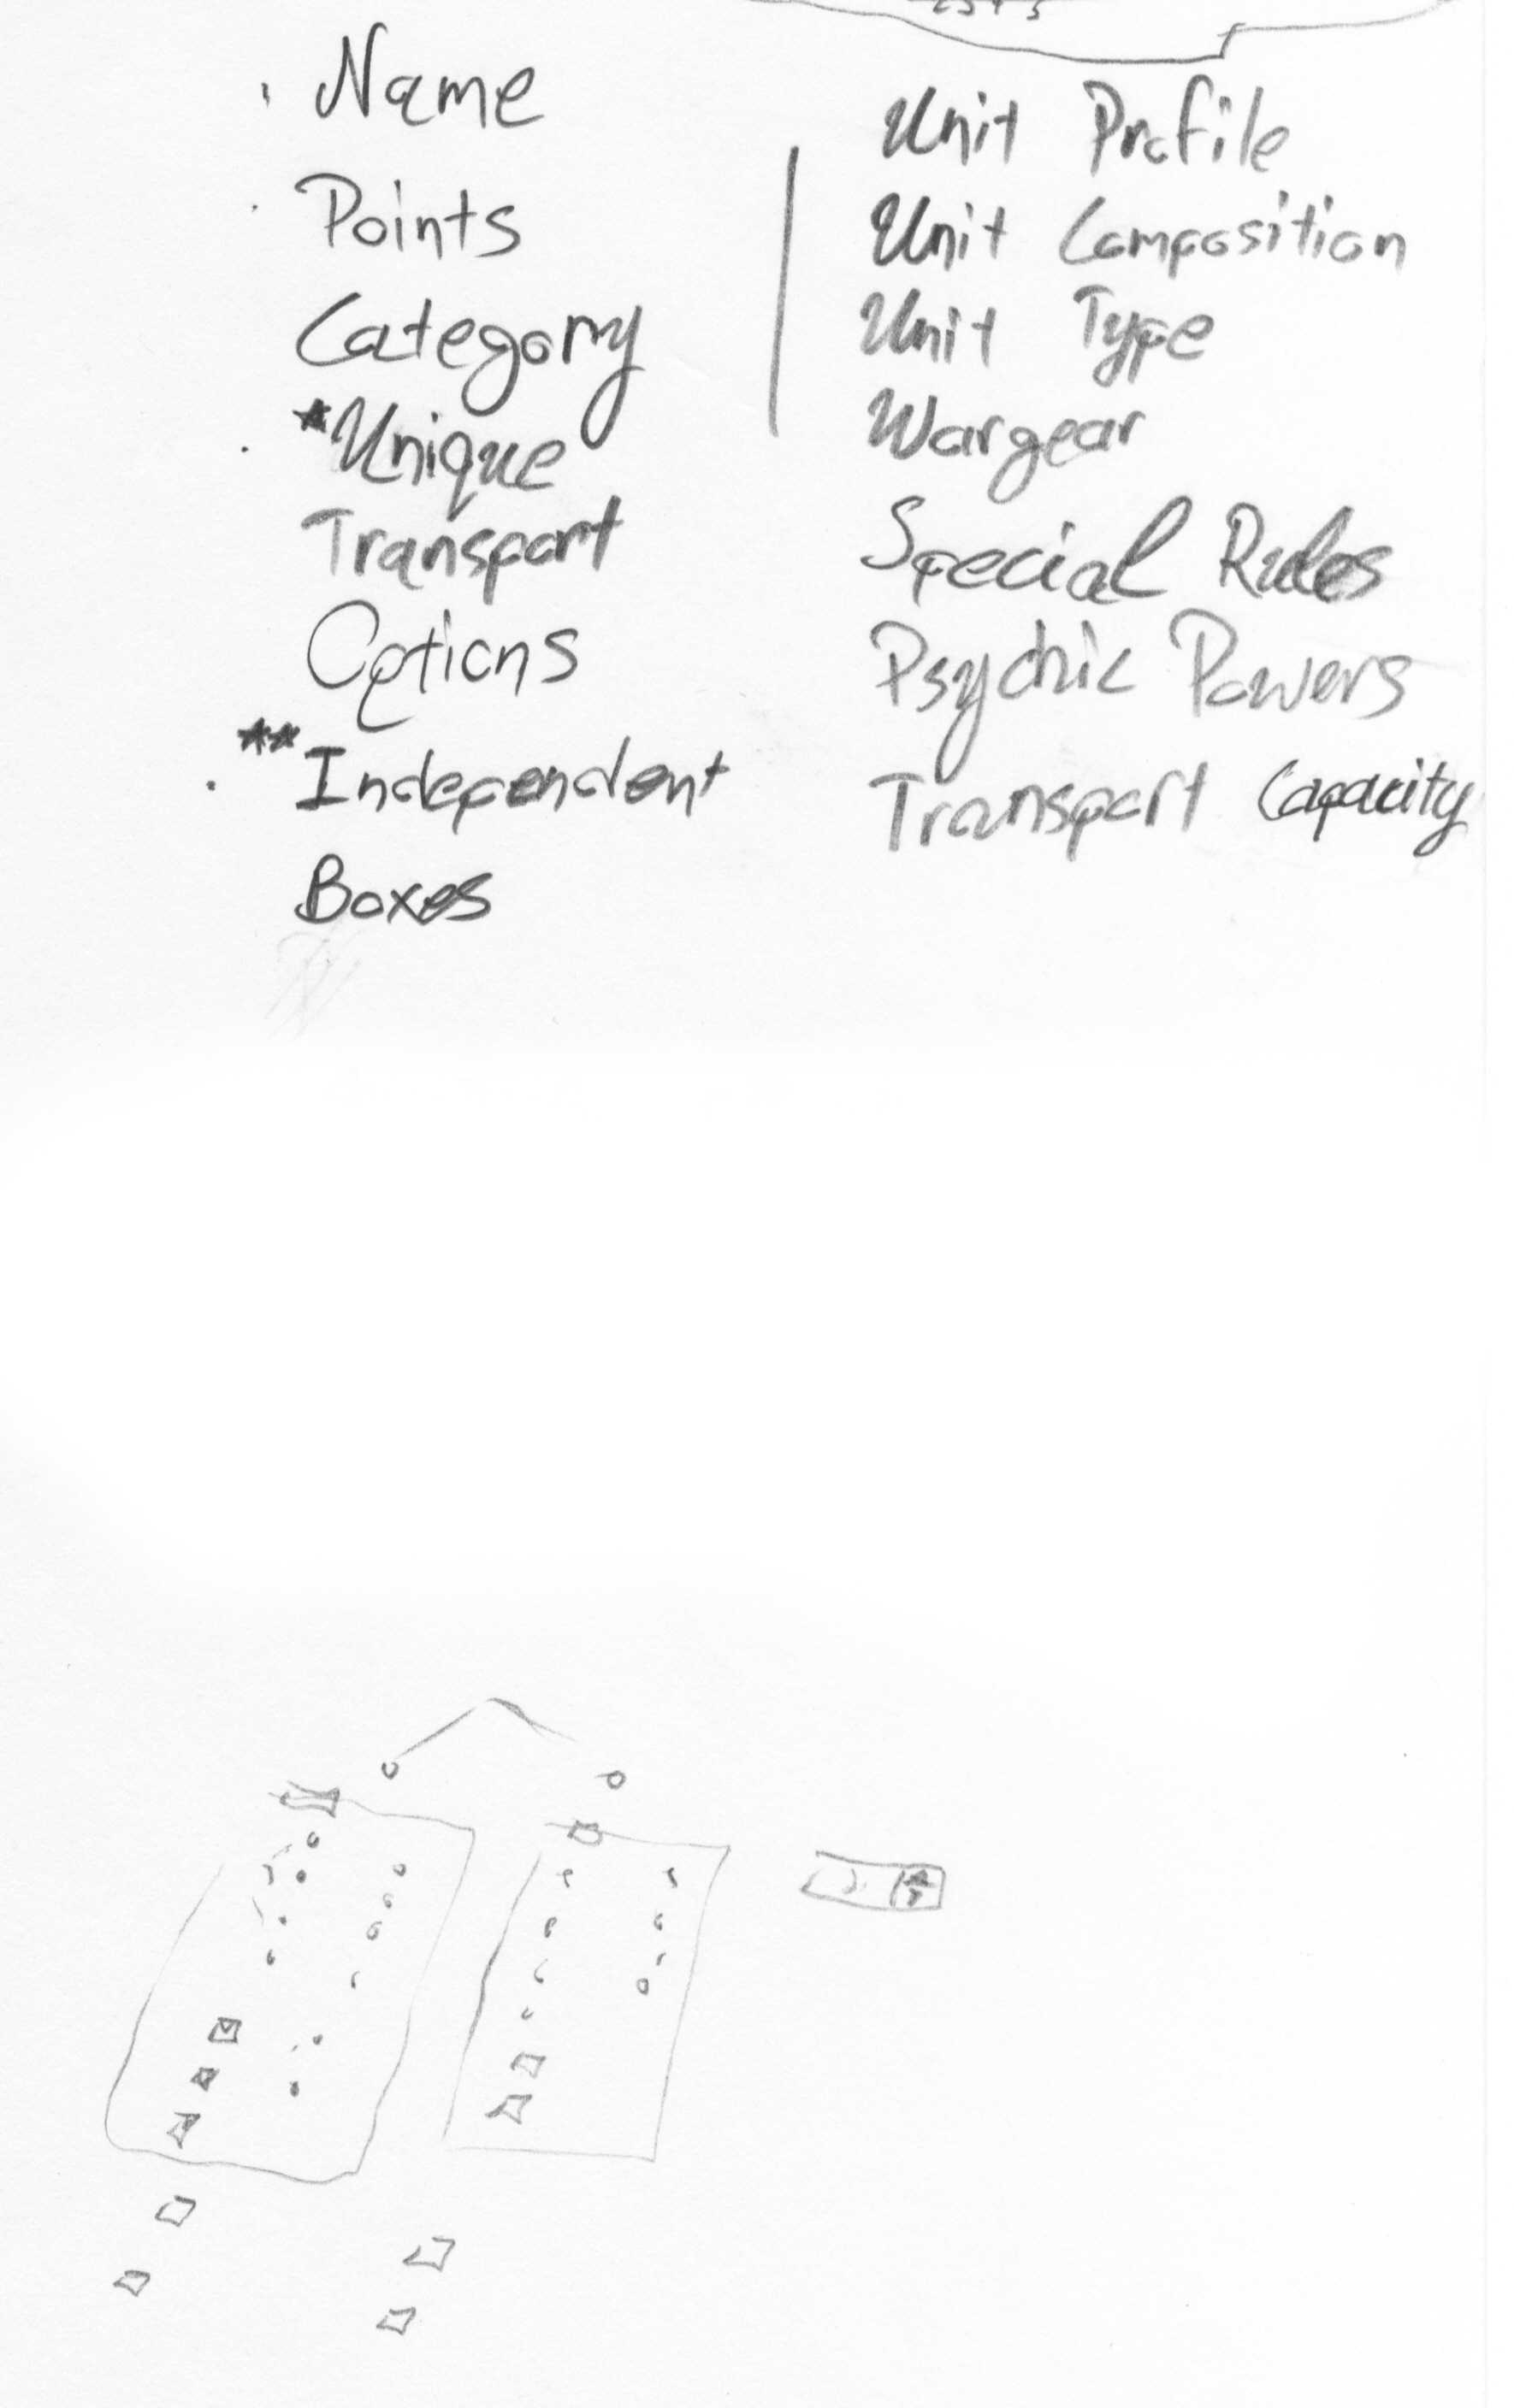 Name
Points
Category
*Unique
Transport
Options
**Independent
Boxes
Unit Profile
Unit Composition
Unit Type
Wargear
Special Rules
Psychic Powers
Transport Capacity